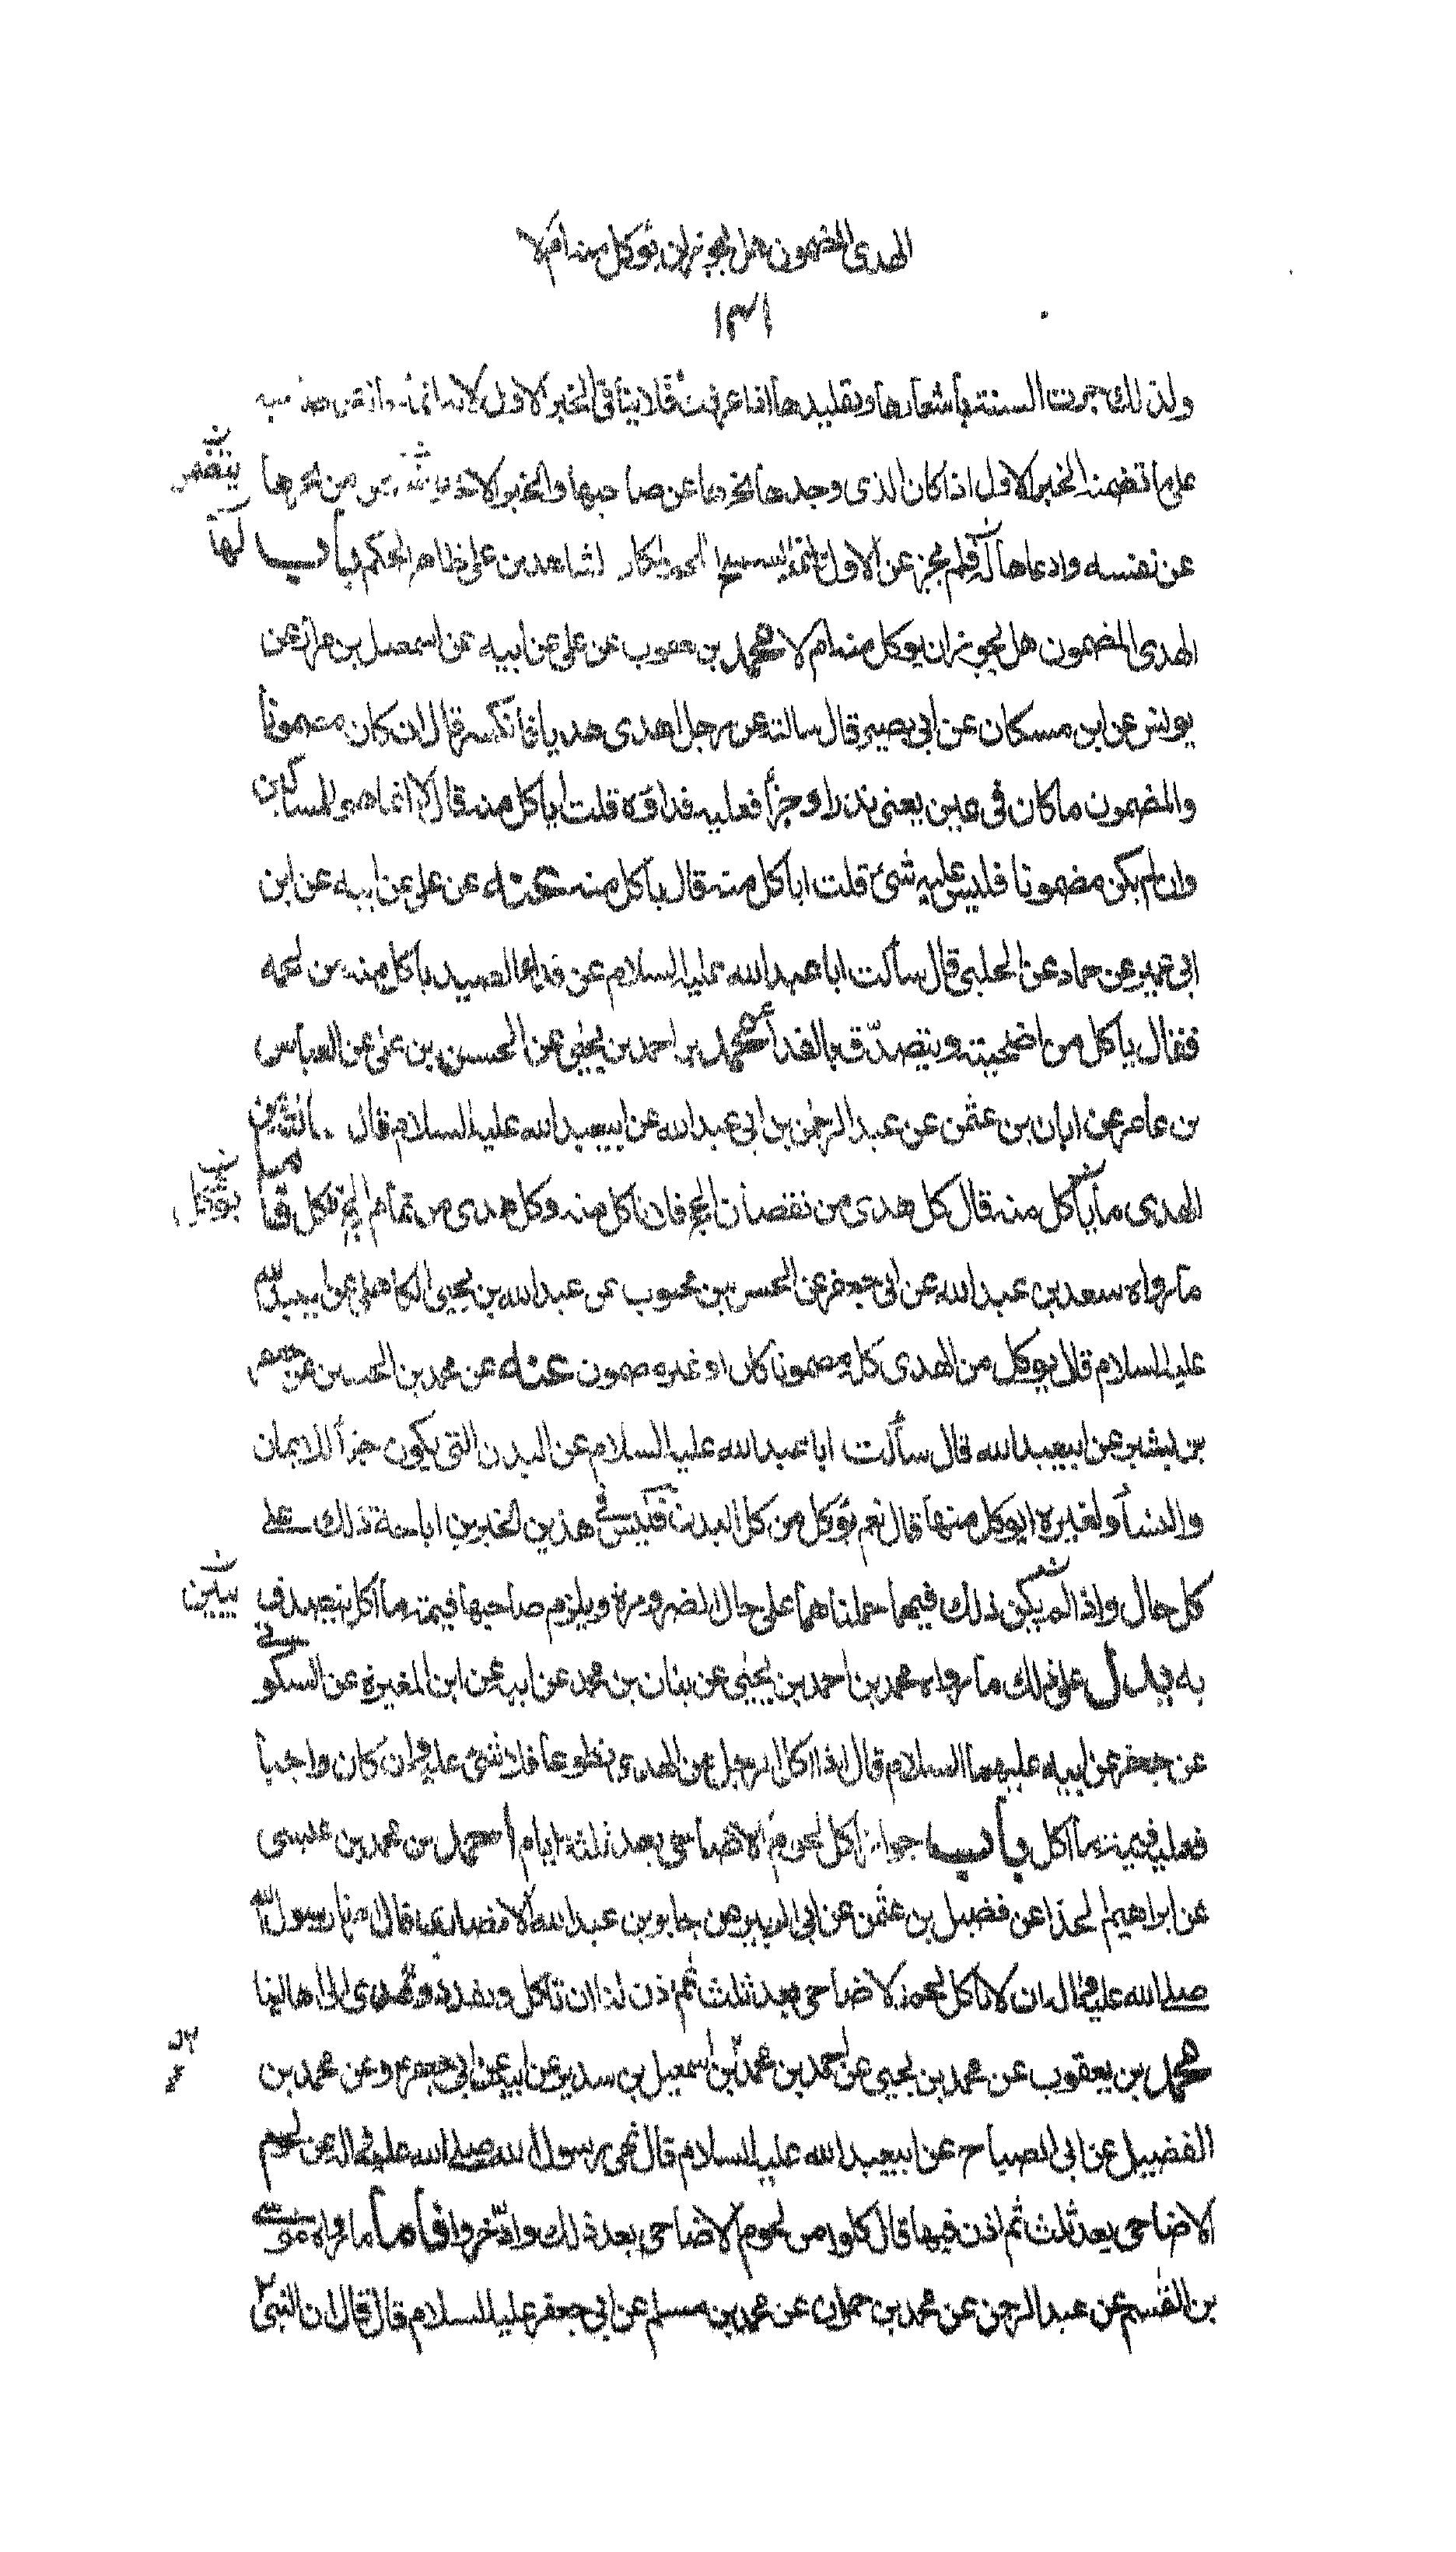 الهدى المضمون هل يجوز ان يؤكل منه ام لا
١٣١
ولذلك جرت السنة باشعارها وتقليدها اذا عرفت فلا ينافي الخبر الاول لانه انما
على ما تضمنه الخبر الاول اذا كان الذي وجدها نحرها عن صاحبها والخبر الاخير من نحرها
يتضمن
عن نفسه وادعاها له فلم يجز عن الاول لشاهدين على ظاهر الحكم باب
لها
الهدى المضمون هل يجوز ان يوكل منه ام لا محمد بن يعقوب عن على عن ابيه عن اسمعيل بن مرار عن
يونس عن ابن مسكان عن ابي بصير قال سالته عن رجل اهدى هديا فانكسر قال ان كان مضمونا
والمضمون ما كان في يمين يعنى نذرا وجزأ فعليه فداؤه قلت أيأكل منه قال لا انما هو للمساكين
وان لم يكن مضمونا فليس عليه شئ قلت اياكل منه قال ياكل منه عنه عن على عن ابيه عن ابن
ابي عمير عن حماد عن الحلبي قال سألت ابا عبد الله عليه السلام عن فداء الصيد ياكل منه من لحمه
فقال ياكل من اضحيته ويتصدّق بالفدأ محمد بن احمد بن يحيى عن الحسن بن على عن العباس
بن عامر عن ابان بن عثمن عن عبد الرحمن بن ابي عبد الله عن ابيعبد الله عليه السلام قال سالته عن
الهدى ما يأكل منه قال كل هدى من نقصان الحج فلا تاكل منه وكل هدى من تمام الحج فكل فأما
يؤكل
ما رواه سعد بن عبد الله عن ابي جعفر عن الحسن بن محبوب عن عبد الله بن يحيى الكاهلي عن ابيعبد الله
عليه السلام قال يوكل من الهدى كله مضمونا كان او غير مضمون عنه عن محمد بن الحسين عن جعفر
بن بشير عن ابيعبد الله قال سألت ابا عبد الله عليه السلام عن البدن التي يكون جزأ للايمان
والنسأ ولغيره ايوكل منها قال نعم يؤكل من كل البدن فليس في هذين الخبرين اباحة ذلك على
كل حال واذا لم يكن ذلك فيهما حملناهما على حال الضرورة ويلزم صاحبها قيمة ما اكل يتصدق
يبين
به يدل على ذلك ما رواه محمد بن احمد بن يحيى عن بنان بن محمد عن ابيه عن ابن المغيرة عن السكوني
عن جعفر عن ابيه عليهما السلام قال اذا اكل الرجل من الهدى تطوعا فلا شئ عليه وان كان واجبا
فعليه قيمة ما اكل باب جواز اكل لحوم الاضاحى بعد ثلثة ايام احمد بن محمد بن عيسى
عن ابراهيم الحذا عن فضيل بن عثمن عن ابي الزبير عن جابر بن عبد الله الانصارى قال رسول الله
صلى الله عليه واله ان لا ناكل لحوم الاضاحى بعد ثلث ثم اذن لنا ان ناكل ونقدد ونهدى الى اهالينا
محمد بن يعقوب عن محمد بن يحيى عن احمد بن محمد بن اسمعيل بن سدير عن ابيه عن ابي جعفر ع وعن محمد بن
الفضيل عن ابى الصباح عن ابيعبد الله عليه السلام قال نهى رسول الله صلى الله عليه واله عن لحوم
الاضاحى بعد ثلث ثم اذن فيها قال كلوا من لحوم الاضاحى بعد ذلك وادّخروا فأما ما رواه موسى
بن القسم عن عبد الرحمن عن محمد بن حمران عن محمد بن مسلم عن ابي جعفر عليه السلام قال قال ان النبي